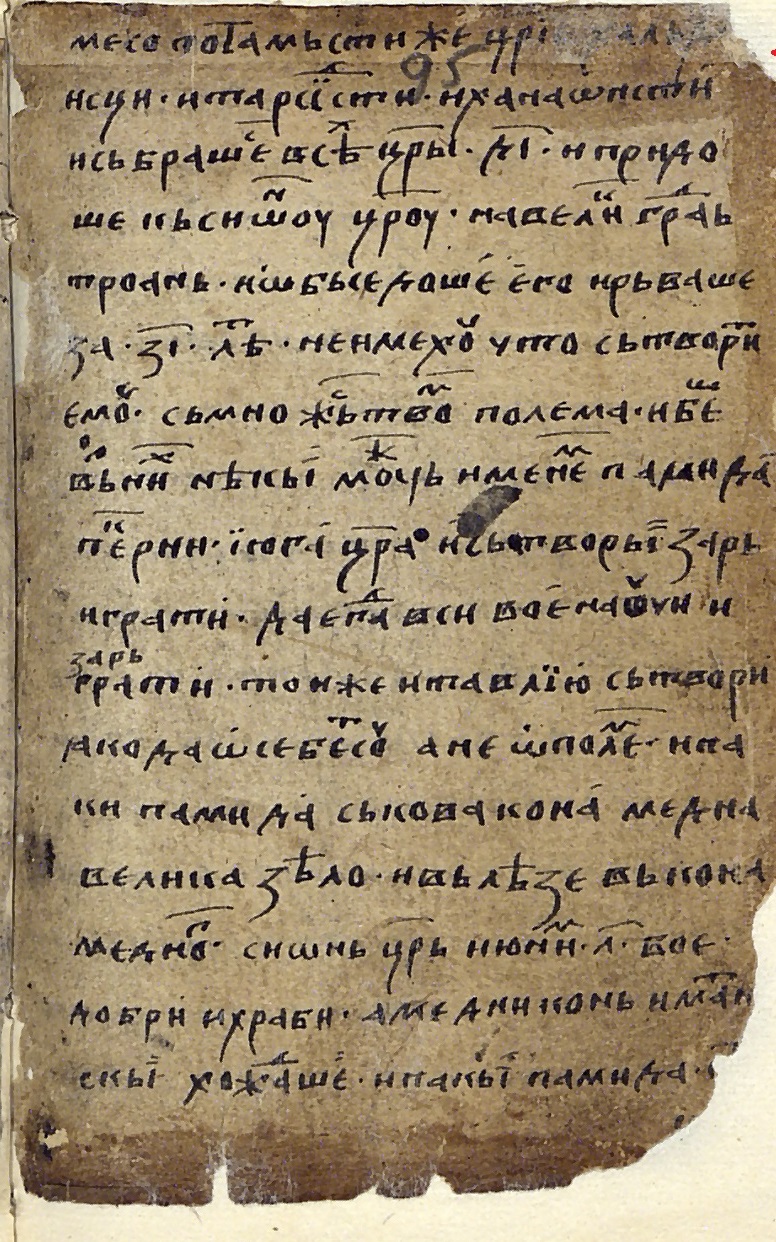 месо потамьсти же цри
исци · и тарсїсти · и ханаѡнсти
и сьбраше всѣ цры · д҃і · и придо
ше кь синѡ́оу цр҃оу · на вели́и гра́дь
троань · и ѡбьседоше его и рьваше
за · з҃і · лѣт · не имехоу что сьтворити
емоу · сьмножьствомь полема · и бе́ше
вь ни́х нѣкьі моужь именемь памида
пѐрии · їюга цр҃а и сьтворьі зарь
играти · да епа́да вси вое наоучи и
зарь
грати · тои же и тавлїю сьтвори
ꙗко да ѿ себе соуть а не ѡ поле́ме · и па
ки памида ськова кона медна
велика ѕѣло · и вьлѣзе вь кона
меднога · синѡнь цр҃ь и юни́и · л҃ · вое ·
добри и храбри · а медни конь има́н
скьі хожда́ше · и пакьі памида
95